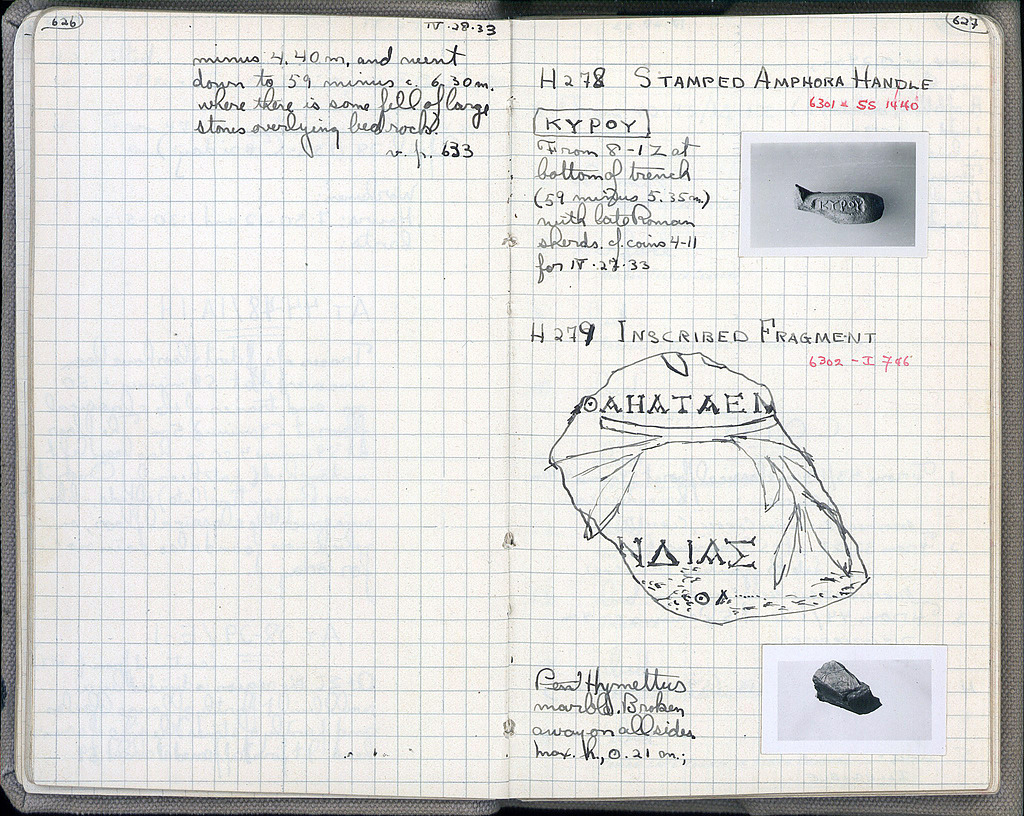 626
IV-28-33
minus 4.40 m, and went
down to 59 minus c. 6.30 m.
where there is some fill of large
stones overlying bedrock.
v. p. 633
627
H 278 STAMPED AMPHORA HANDLE
6301 SS 1440
ΚΥΡΟΥ
From 8-12 at
bottom of trench
(59 minus 5.35 m)
with late Roman
sherds. cf. coins 4-11
for IV-27-33
ΚΥΡΟΥ
H 279 INSCRIBED FRAGMENT
6302 - I 746
ΘΑΗΑΤΑΕΝ
ΝΔΙΑΣ
ΘΑ
Pen' Hymettus
marble. Broken
away on all sides.
Max. h., 0.21 m.;